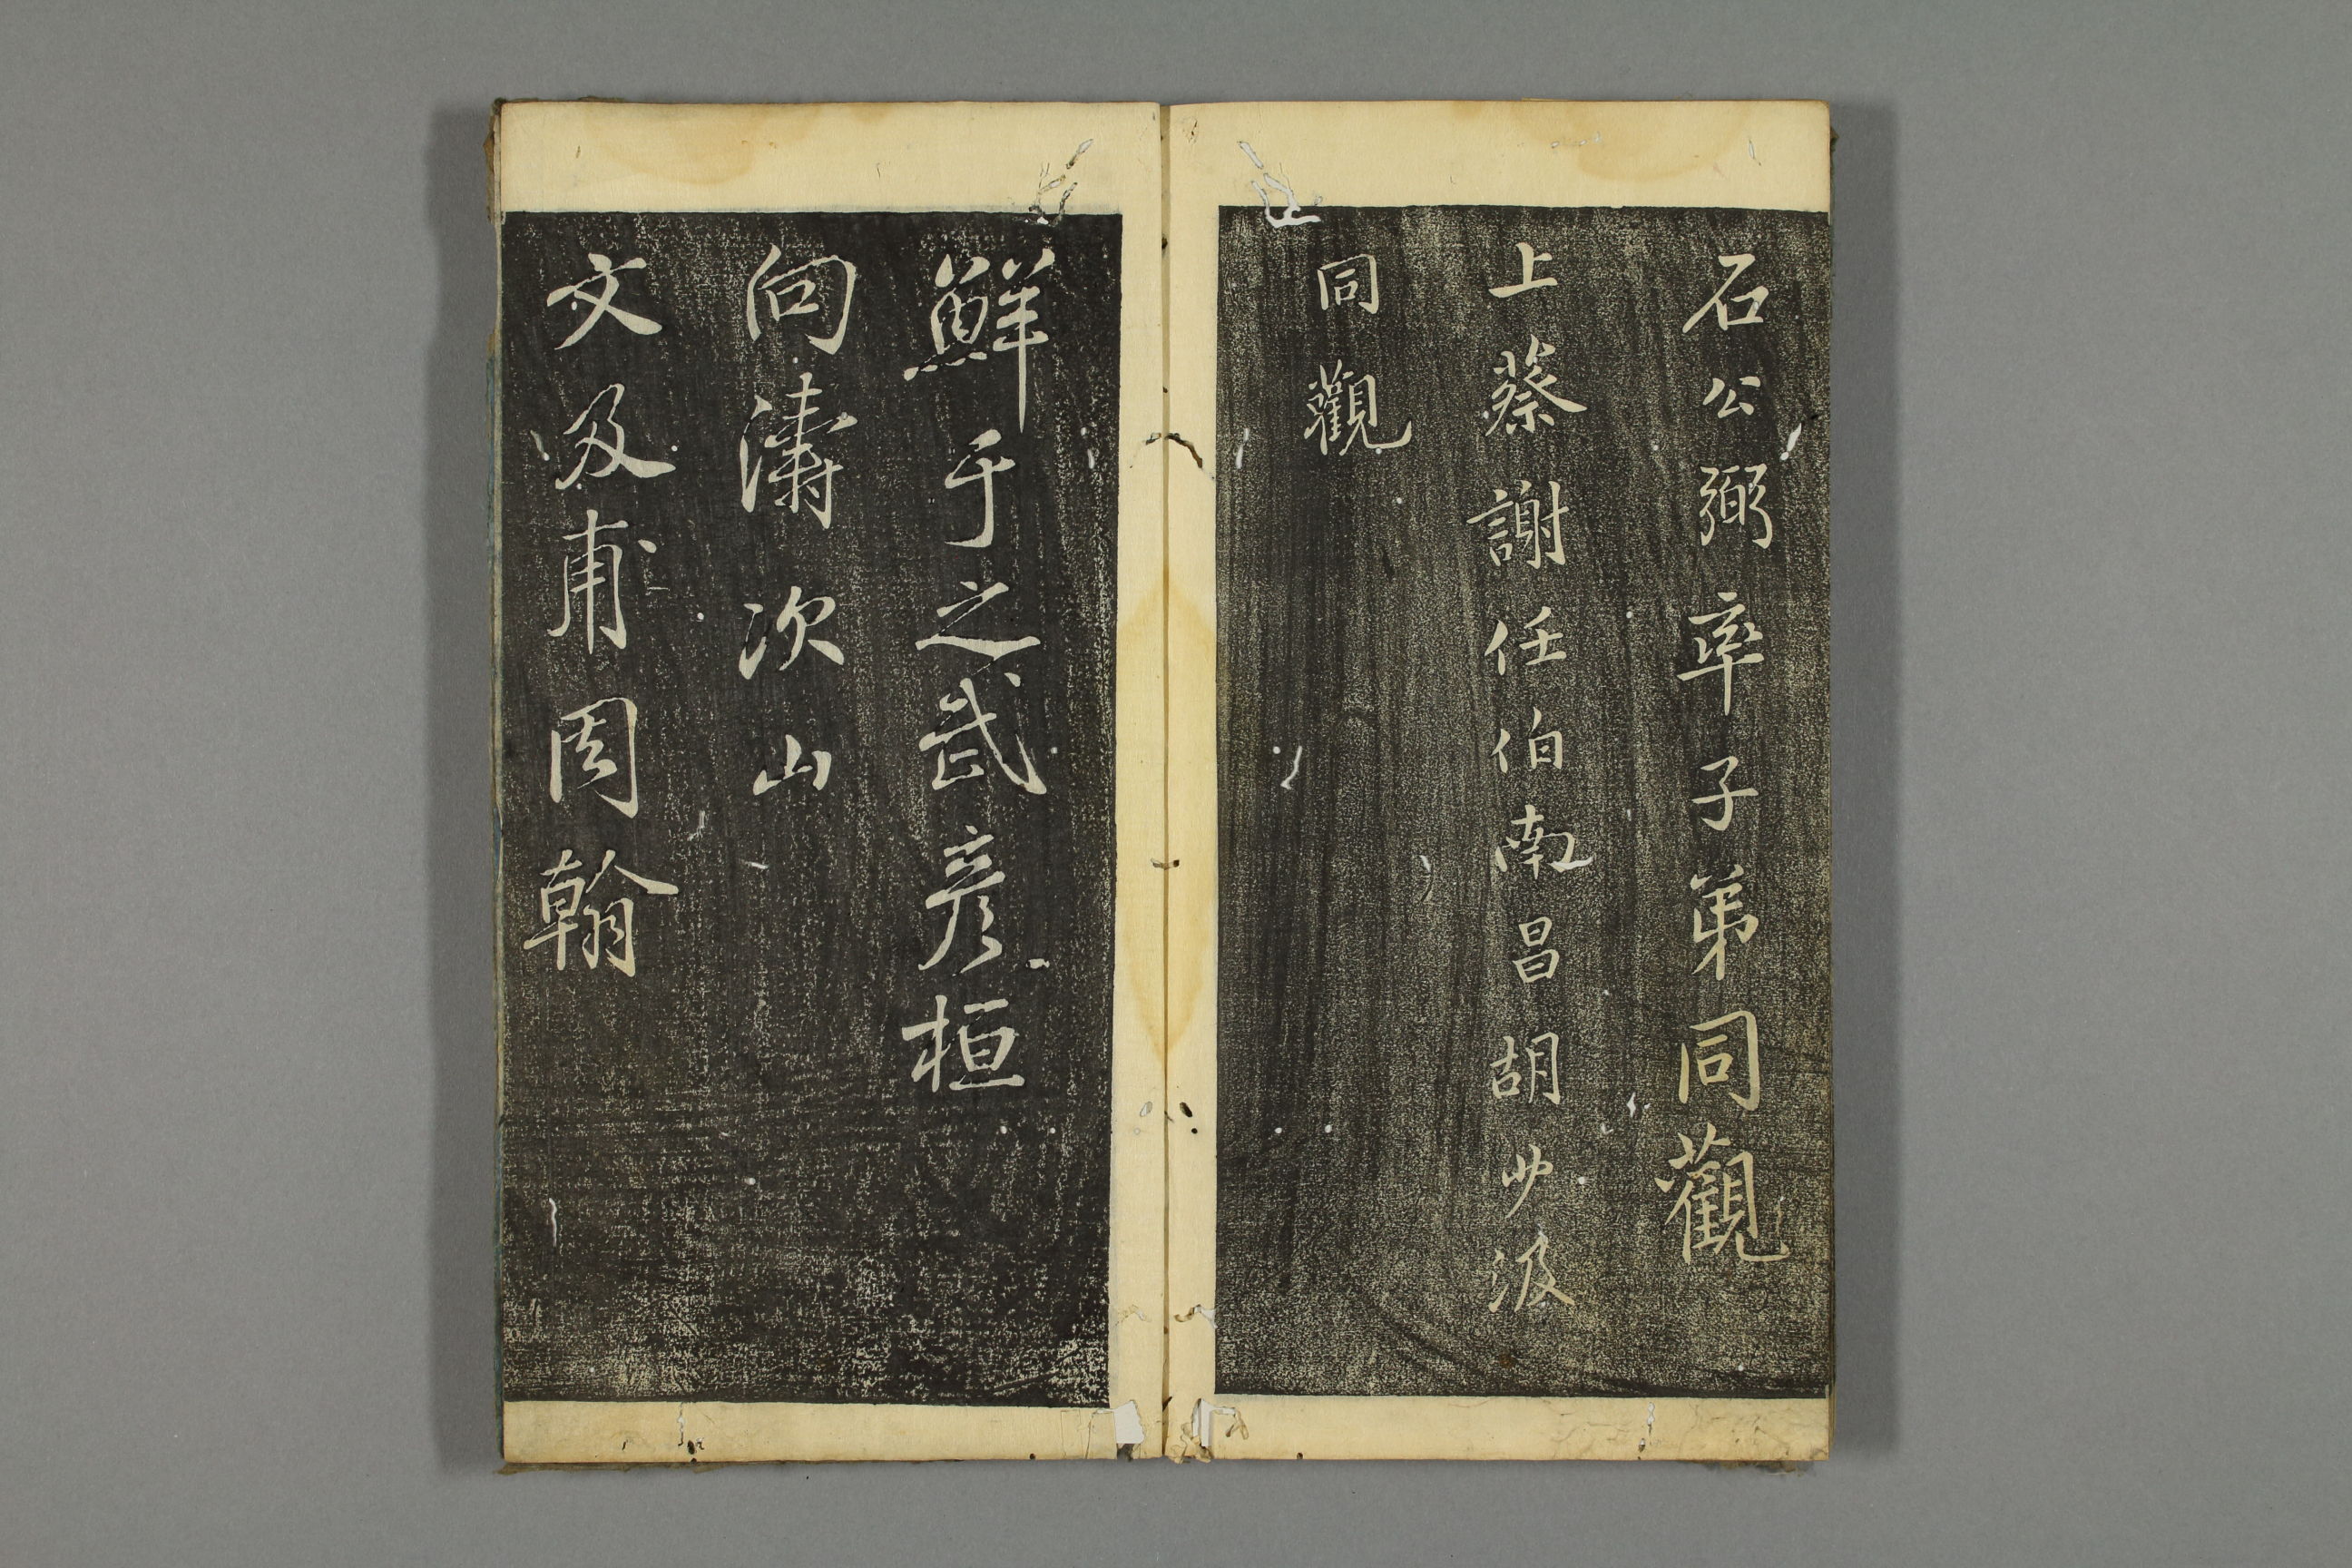 石公弼率子弟同觀
上蔡謝任伯南昌胡少汲
同觀
鮮于之武彦桓
向濤次山
文及甫周翰